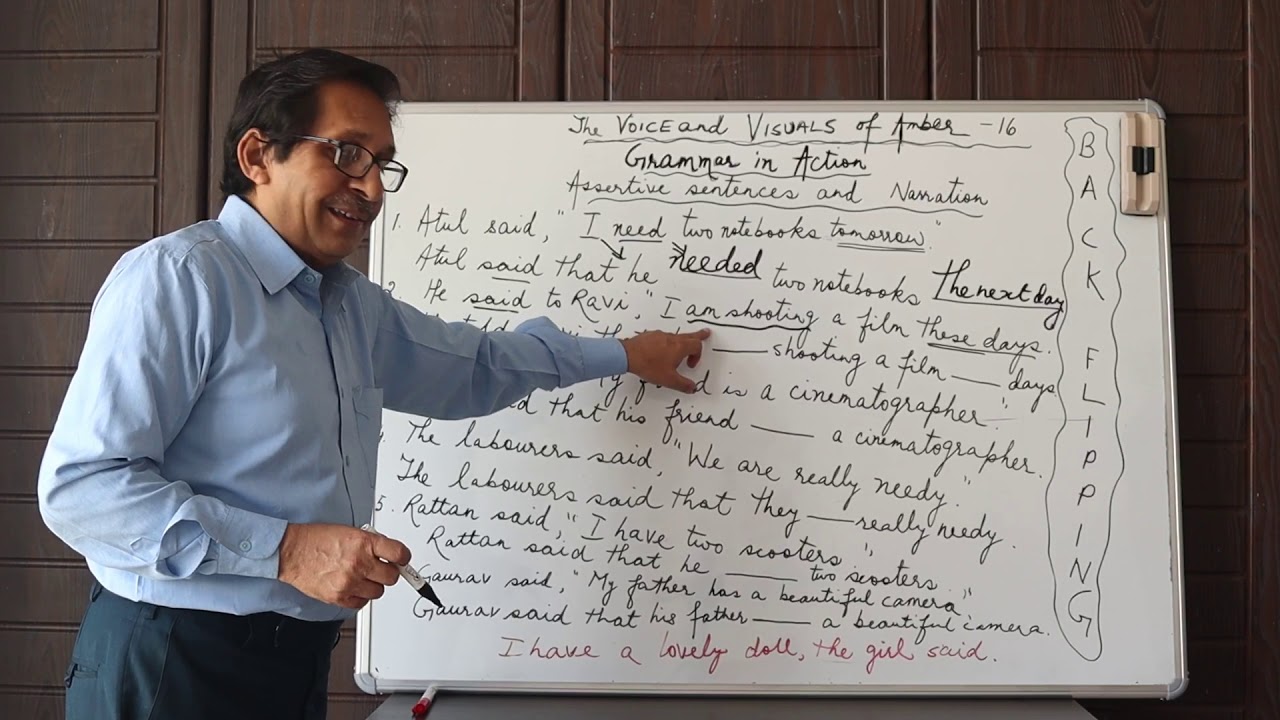 The VOICE and VISUALS of Amber - 16
Grammar in Action
Assertive sentences and Narration
1. Atul said, "I need two notebooks tomorrow."
Atul said that he needed two notebooks the next day
2. He said to Ravi, "I am shooting a film these days.
____ shooting a film ____ days
is a cinematographer."
that his friend ____ a cinematographer.
4. The labourers said, "We are really needy."
The labourers said that they ____ really needy.
5. Rattan said, "I have two scooters"
Rattan said that he ____ two scooters
Gaurav said, "My father has a beautiful camera"
Gaurav said that his father ____ a beautiful camera.
I have a lovely doll, the girl said.
BACK FLIPPING